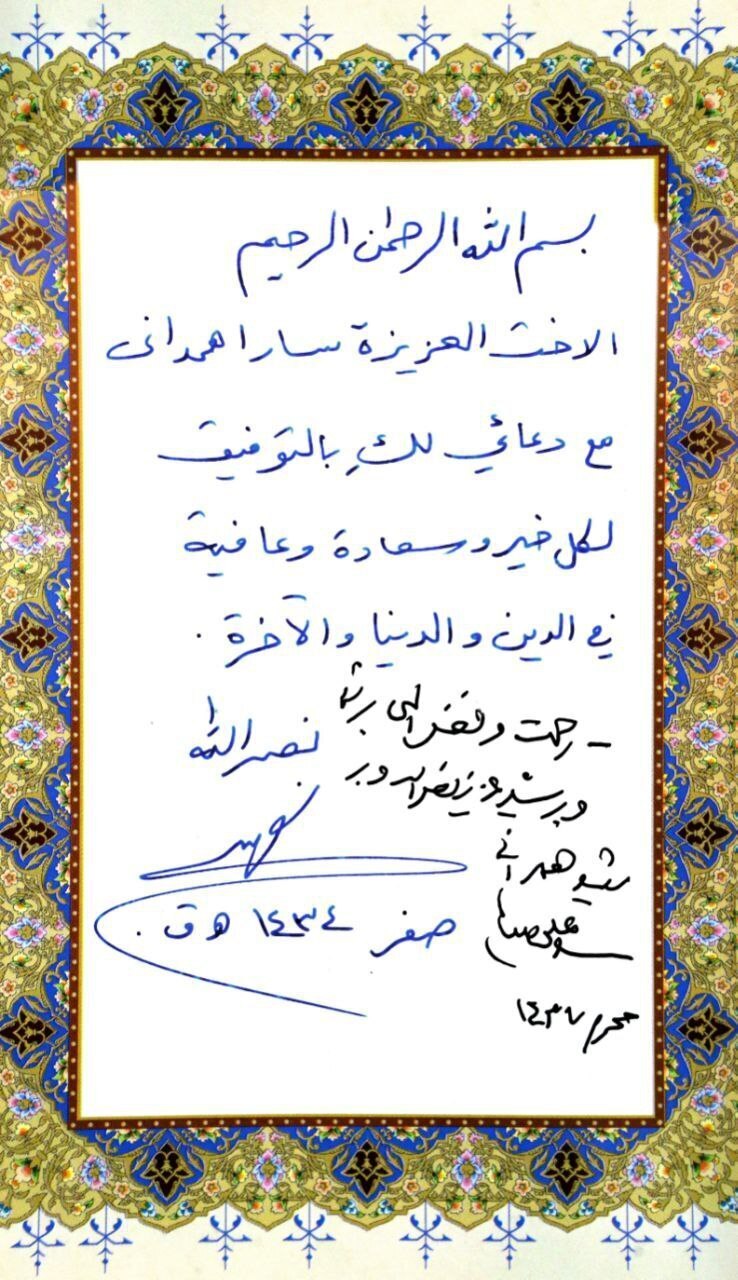 بسم الله الرحمن الرحيم
الاخت العزيزة سارا همدانى
مع دعائي لكِ بالتوفيق
لكل خير وسعادة وعافية
في الدين والدنيا والآخرة .
نصر الله
صفر ١٤٣٤ هـ ق .
– رحمت و فضل الهى بر شما
و بر سيد عزيز نصرالله و بر
شهيد همدانى
محرم ١٤٣٧